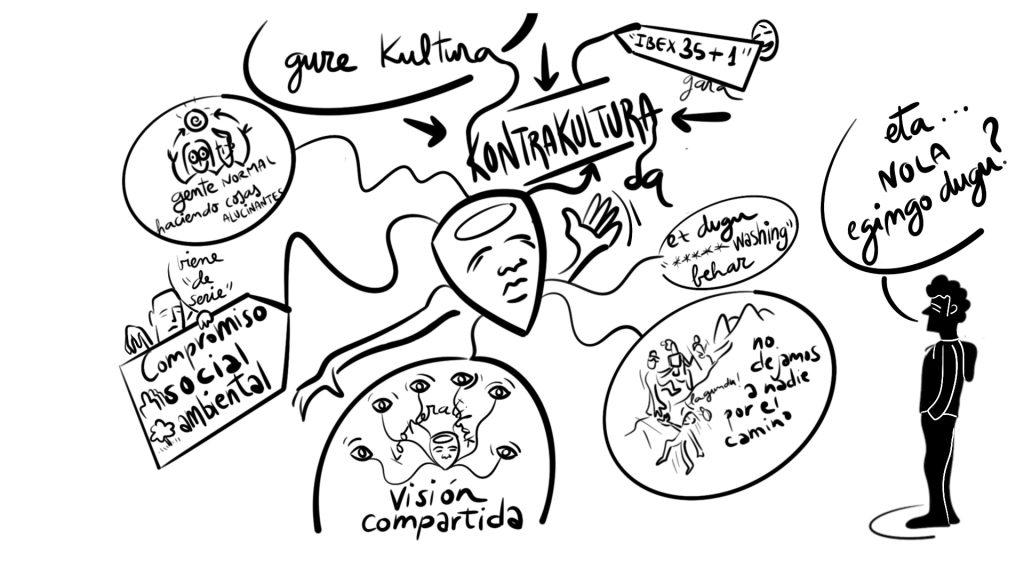 gure kultura
KONTRAKULTURA
da
"IBEX 35+1"
gara
gente NORMAL
haciendo cosas
ALUCINANTES
viene
"de
serie"
Compromiso
social
ambiental
Visión
compartida
ez dugu
"***** washing"
behar
no
dejamos
a nadie
por el
camino
eta...
NOLA
egingo dugu?